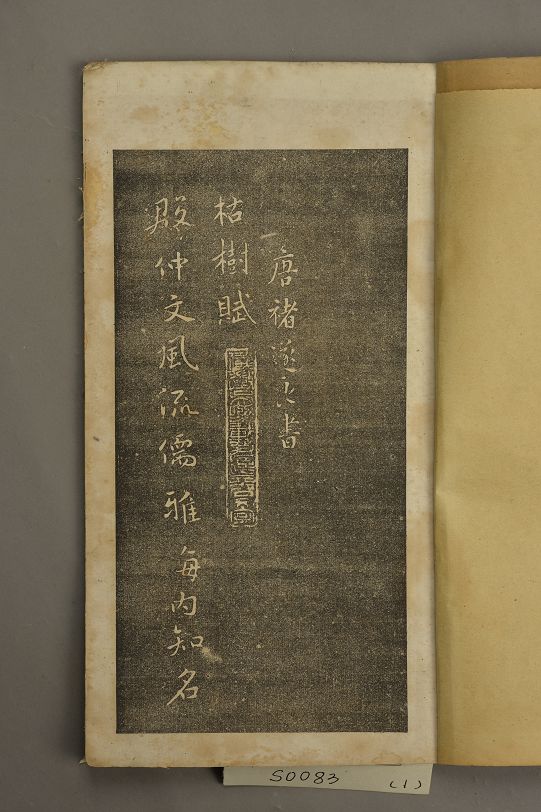 唐褚遂良書
枯樹賦
殷仲文風流儒雅海内知名
S0083 (1)